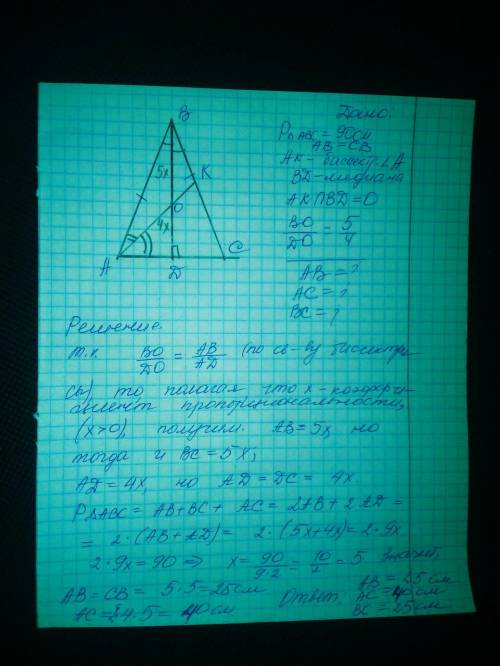 B
5x
K
O
4x
A
D
C
Дано:
P△ABC = 90см
AB = CB
AK - биссектр. ∠A
BD - медиана
AK∩BD = O
BO/DO = 5/4
AB = ?
AC = ?
BC = ?
Решение.
т.к. BO/DO = AB/AD (по св-ву биссектри-
сы), то полагая что x - коэффи-
циент пропорциональности,
(x>0), получим. AB = 5x, но
тогда и BC = 5x;
AD = 4x, но AD = DC = 4x
P△ABC = AB + BC + AC = 2AB + 2AD =
= 2·(AB + AD) = 2·(5x+4x) = 2·9x
2·9x = 90 ⇒ x = 90/9·2 = 10/2 = 5 Значит,
AB = CB = 5·5 = 25см
AC = 2·4·5 = 40см
Ответ: AB = 25см
AC = 40см
BC = 25см